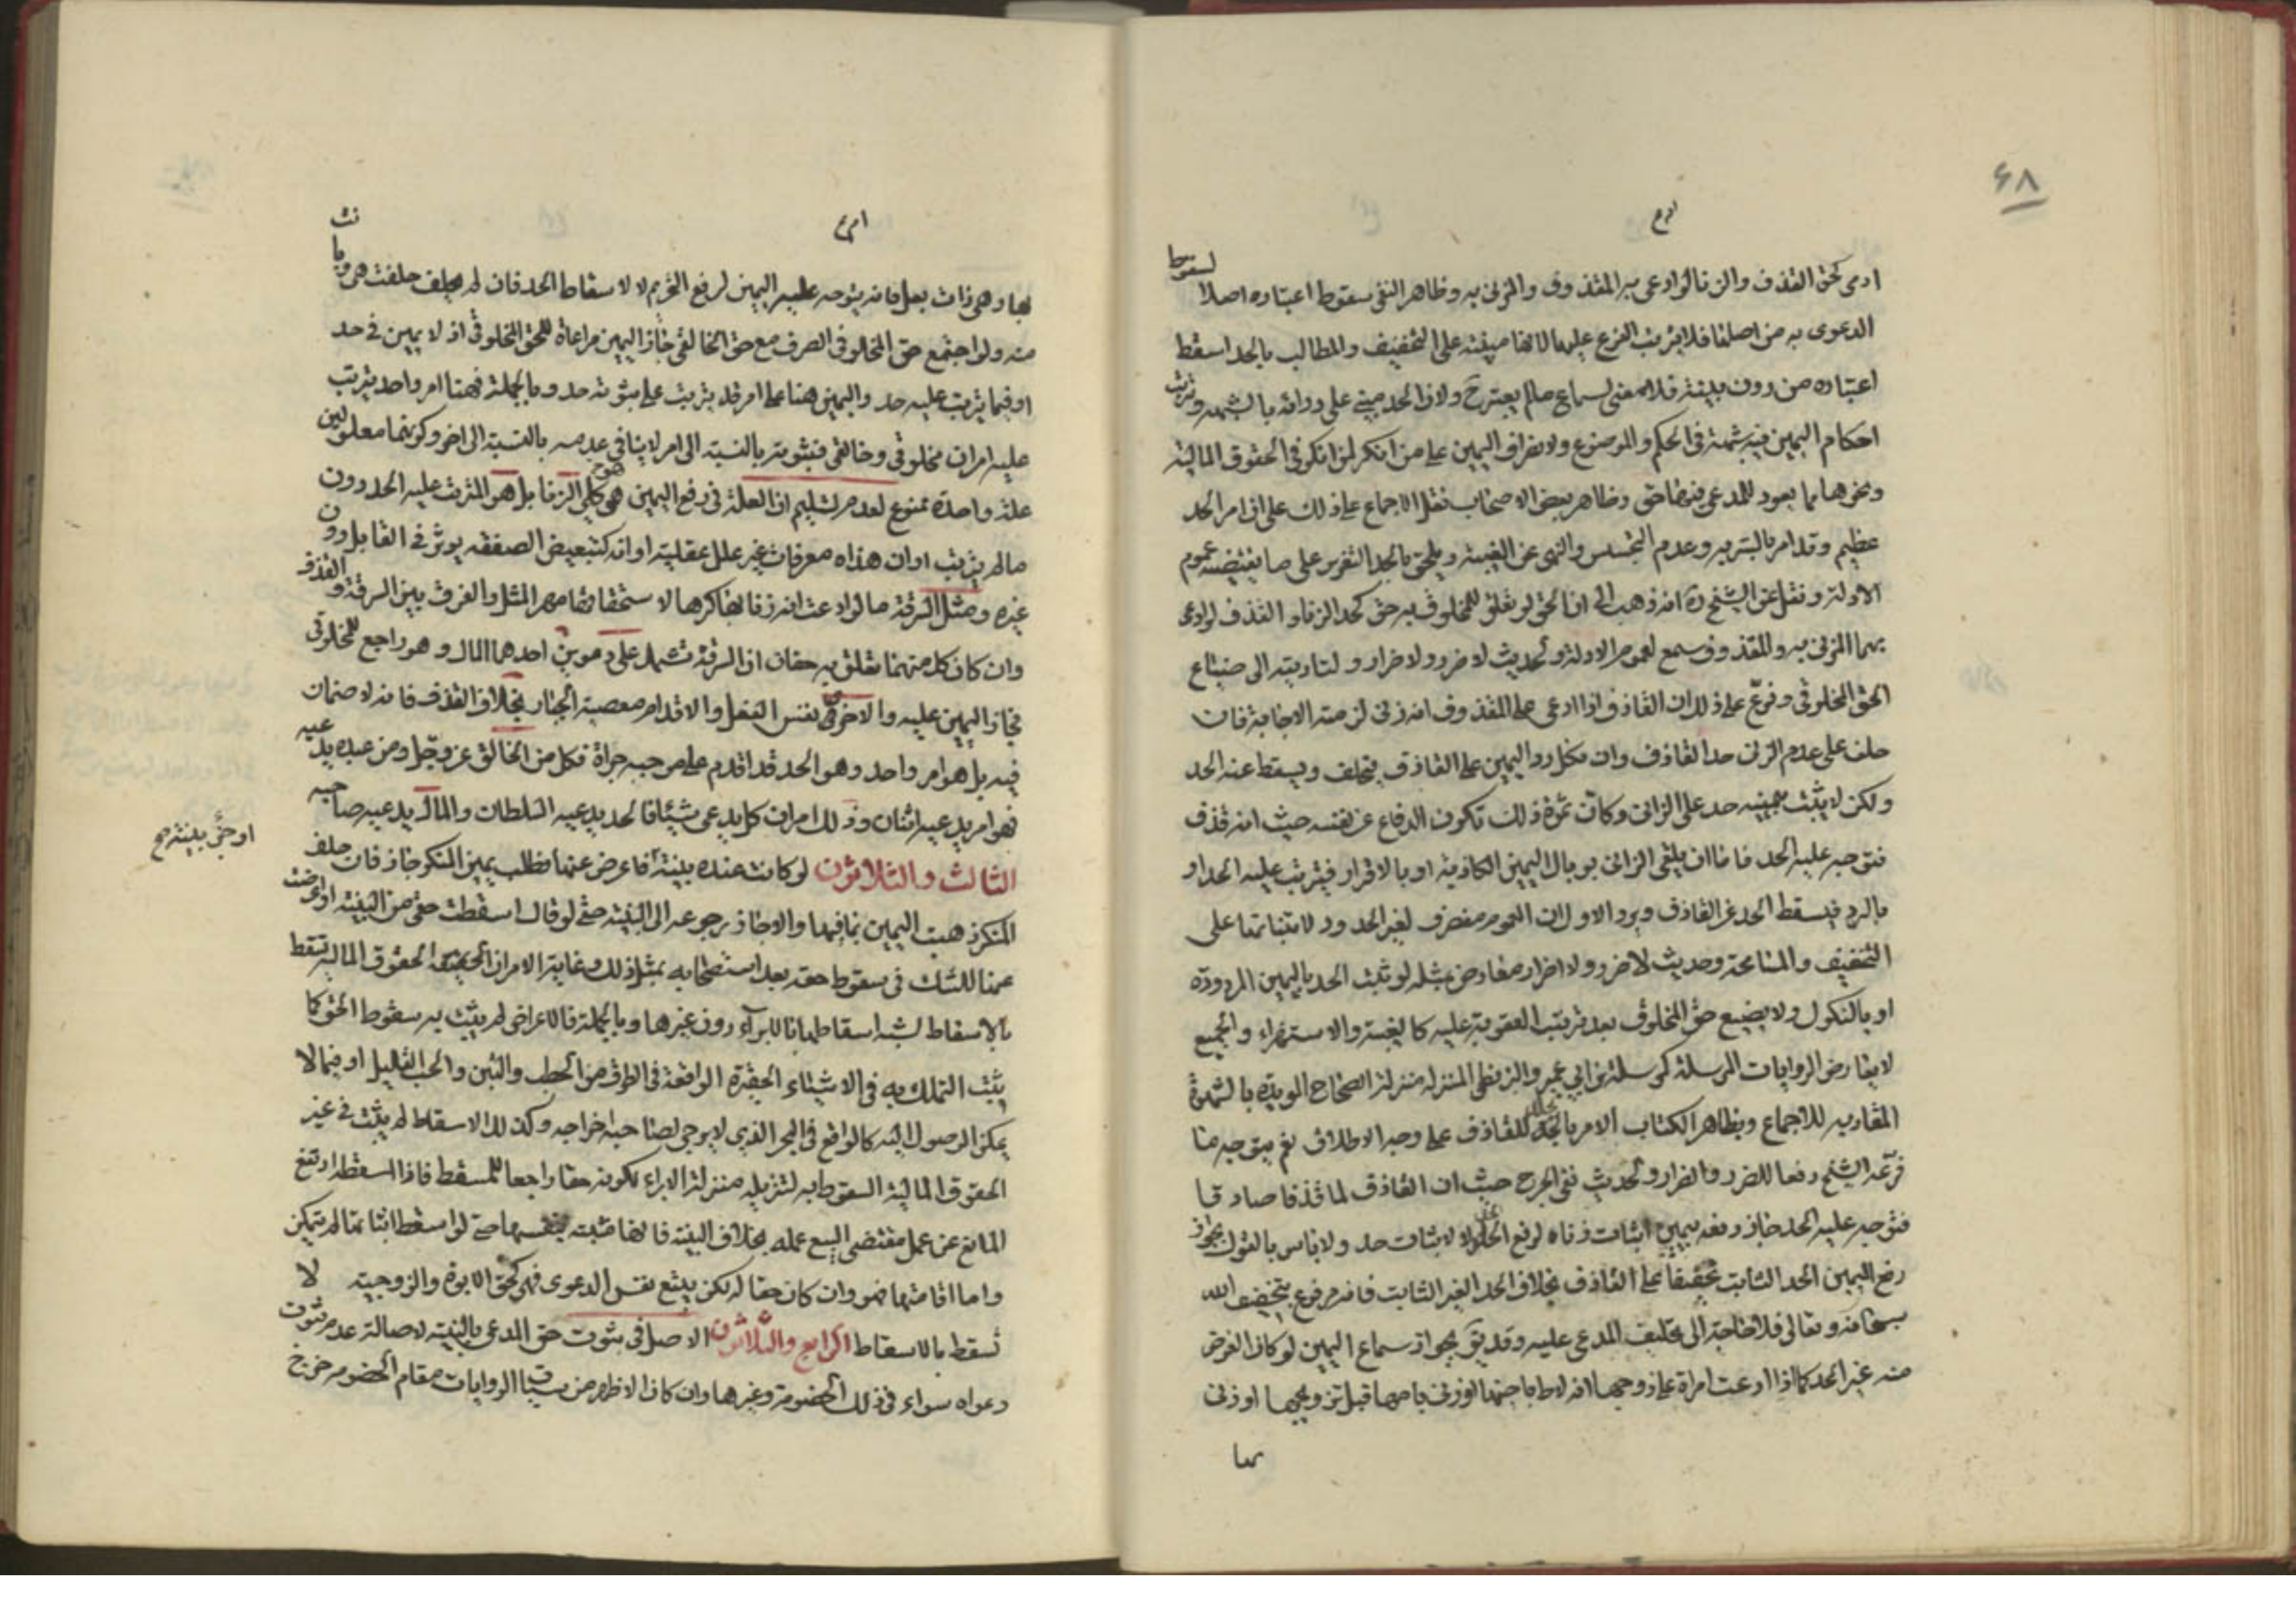 ٦٨
ادمى كحق القذف والزنا لو ادعى به المقذوف والمزنى به وظاهر النفى سقوط اعتباره اصلا لسقوط
الدعوى به من اصلها فلا يترتب الفرع عليها لانها مبنية على التخفيف والمطالب بالحد اسقط
اعتباره من دون بينة فلا معنى لسماع مالم يعتبر ولان الحد مبنى على درائه بالشبهه وترتب
احكام اليمين فيه شبهة فى الحكم والموضوع ولانصراف اليمين على من انكر لمن انكر فى الحقوق المالية
ونحوها مما يعود للمدعى فيوضا حق وظاهر بعض الاصحاب نقل الاجماع على ذلك على ان امر الحد
عظيم وقد امر بالستر به وعدم التجسس والنهى عن الغيبة ويلحق بالحد التعزير على ما يقتضيه عموم
الادلة ونقل عن الشيخ ره انه ذهب الى ان الحق لو تعلق للمخلوق به حق كحد الزنا والقذف لو ادعى
بهما المزنى به والمقذوف سمع لعموم الادلة ولحديث لا ضرر ولا ضرار ولتاديته الى ضياع
الحق المخلوقى وفرع على ذلك ان القاذف اذا ادعى على المقذوف انه زنى لزمته الاجابة فان
حلف على عدم الزنى حد القاذف وان نكل رد اليمين على القاذف فيحلف ويسقط عنه الحد
ولكن لا يثبت بيمينه حد على الزانى وكان ثمرة ذلك تكون الدفاع عن نفسه حيث انه قذف
فتوجه عليه الحد فاما ان يلقى الزانى بوبال اليمين الكاذبة او بالاقرار فيترتب عليه الحد او
بالرد فيسقط الحد عن القاذف ويرد الاول ان العموم منصرف لغير الحدود لابتنائها على
التخفيف والمسامحة وحديث لا ضرر ولا اضرار معارض بمثله لو ثبت الحد باليمين المردودة
او بالنكول ولا يضيع حق المخلوق بعد ترتب العقوبة عليه كالغيبة والاستهزاء والجميع
لا يعارض الروايات المرسلة كمرسلة بن ابى عمير والبزنطى المنزلة منزلة الصحاح المويدة بالشهرة
المقاربه للاجماع وبظاهر الكتاب الامر بالجلد للقاذف على وجه الاطلاق نعم يتوجه ما
فرعه الشيخ دفعا للضرر والضرار ولحديث نفى الحرج حيث ان القاذف لما قذفا صادقا
فتوجه عليه الحد جاز دفعه بيمين اثبات زناه لرفع الحد لا لاثبات حد ولا باس بالقول بجواز
رفع اليمين الحد الثابت تخفيفا على القاذف بخلاف الحد الغير الثابت فانه مرفوع بتخفيف الله
سبحانه وتعالى فلا حاجة الى تحليف المدعى عليه وقد يق بجواز سماع اليمين لو كان الغرض
منه غير الحد كما اذا ادعت امراة على زوجها انه لاط باخيها او زنى بامها قبل تزويجها او زنى
بها
بها وهى ذات بعل فانه يتوجه عليه اليمين لرفع التحريم لا لاسقاط الحد فان لم يحلف حلفت هى وبانت
منه ولو اجتمع حق المخلوقى الصرف مع حق الخالقى جاز اليمين مراعاة للحق المخلوقى اذ لا يمين فى حد
او فيما يترتب عليه حد واليمين هنا على امر قد يترتب على ثبوته حد وبالجملة فهنا امر واحد يترتب
عليه امران مخلوقى وخالقى فثبوته بالنسبة الى امر لا ينافى عدمه بالنسبة الى اخر وكونهما معلولين
علة واحدة ممنوع لعدم تسليم ان العلة فى رفع اليمين هى كلى الزنا بل هو المترتب عليه الحد دون
مالم يترتب او ان هذه معرفات غير علل عقلية او انه كتبعيض الصفقه يوثر فى القابل دون
غيره ومثل السرقة مالو ادعت انه زنا بها كرها لاستحقاقها مهر المثل والفرق بين السرقة والقذف
وان كان كل منهما تعلق به حقان ان السرقة تشتمل على امرين احدهما المال وهو راجع للمخلوقى
فجاز اليمين عليه والاخر نفس الفعل والاقدام معصية الجبار بخلاف القذف فانه لا ضمان
فيه بل هو امر واحد وهو الحد قد اقدم على موجبه جراة فكل من الخالق عز وجل ومن عبده يدعيه
فهو امر يدعيه اثنان وذلك امران كل يدعى شيئا فالحد يدعيه السلطان والمال يدعيه صاحبه
الثالث والثلاثون لو كانت عنده بينة فاعرض عنها وطلب يمين المنكر جاز فان حلف
المنكر ذهبت اليمين بما فيها والا جاز رجوعه الى البينة حتى لو قال اسقطت حقى من البينة او اعرضت
عنها للشك فى سقوط حقه بعد استصحابه بمثل ذلك وغاية الامر ان الحقوق المالية تسقط
بالاسقاط لشبه اسقاطها بالابراء دون غيرها وبالجملة فالاعراض لم يثبت به سقوط الحق كما
يثبت التملك به فى الاشياء الحقيرة الواقعة فى الطرق من الحطب والتبن والحب القليل او فيما لا
يمكن الوصول اليه كالواقع فى البحر الذى لا يرجى لصاحبه اخراجه وكذلك الاسقاط لم يثبت فى غير
الحقوق المالية السقوط به لتنزيله منزلة الابراء لكونه حقا راجعا للمسقط فاذا اسقطه ارتفع
المانع عن عمل مقتضى البيع عمله بخلاف البينة فانها مثبتة بنفسها حتى لو اسقط اثباتها لم يتمكن
واما اقامتها فهو وان كان حقا له لكن يتبع نفس الدعوى فهى كحق الابوة والزوجية لا
تسقط بالاسقاط الرابع والثلاثون الاصل فى ثبوت حق المدعى بالبينة لاصالة عدم ثبوت
دعواه سواء فى ذلك الخصومة وغيرها وان كان الاظهر من سياق الروايات مقام الخصومه خرج
او حق بينته صح